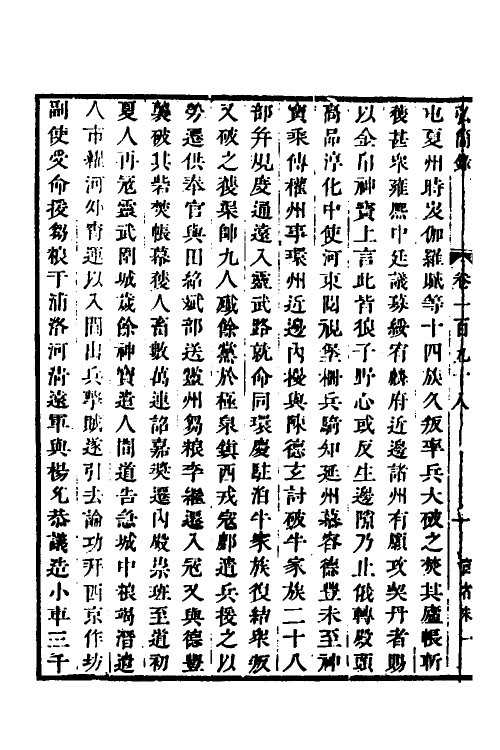 弘簡錄　卷一百九十八　十
屯夏州時岌伽羅膩等十四族久叛率兵大破之焚其廬帳斬
獲甚衆雍熙中廷議募緩宥麟府近邊諸州有願攻契丹者賜
以金帛神寶上言此皆狼子野心或反生邊隙乃止俄轉殿頭
高品淳化中使河東閱視堡柵兵騎知延州慕容德豊未至神
寶乘傳權州事環州近邊內擾與陳德玄討破牛家族二十八
部幷規度通遠入靈武路就命同環慶駐泊牛家族復結衆叛
又破之獲渠帥九人殲餘黨於極泉鎮西戎寇鄜遣兵援之以
勞遷供奉官與田紹斌部送靈州芻粮李繼遷入寇又與德豊
襲破其砦焚帳幕獲人畜數萬連詔嘉奬遷內殿崇班至道初
夏人再寇靈武圍城歲餘神寶遣人間道告急城中粮竭潛遣
人市糴河外宵運以入間出兵擊賊遂引去論功拜西京作坊
副使受命援芻粮于浦洛河淸遠軍與楊允恭議造小車三千